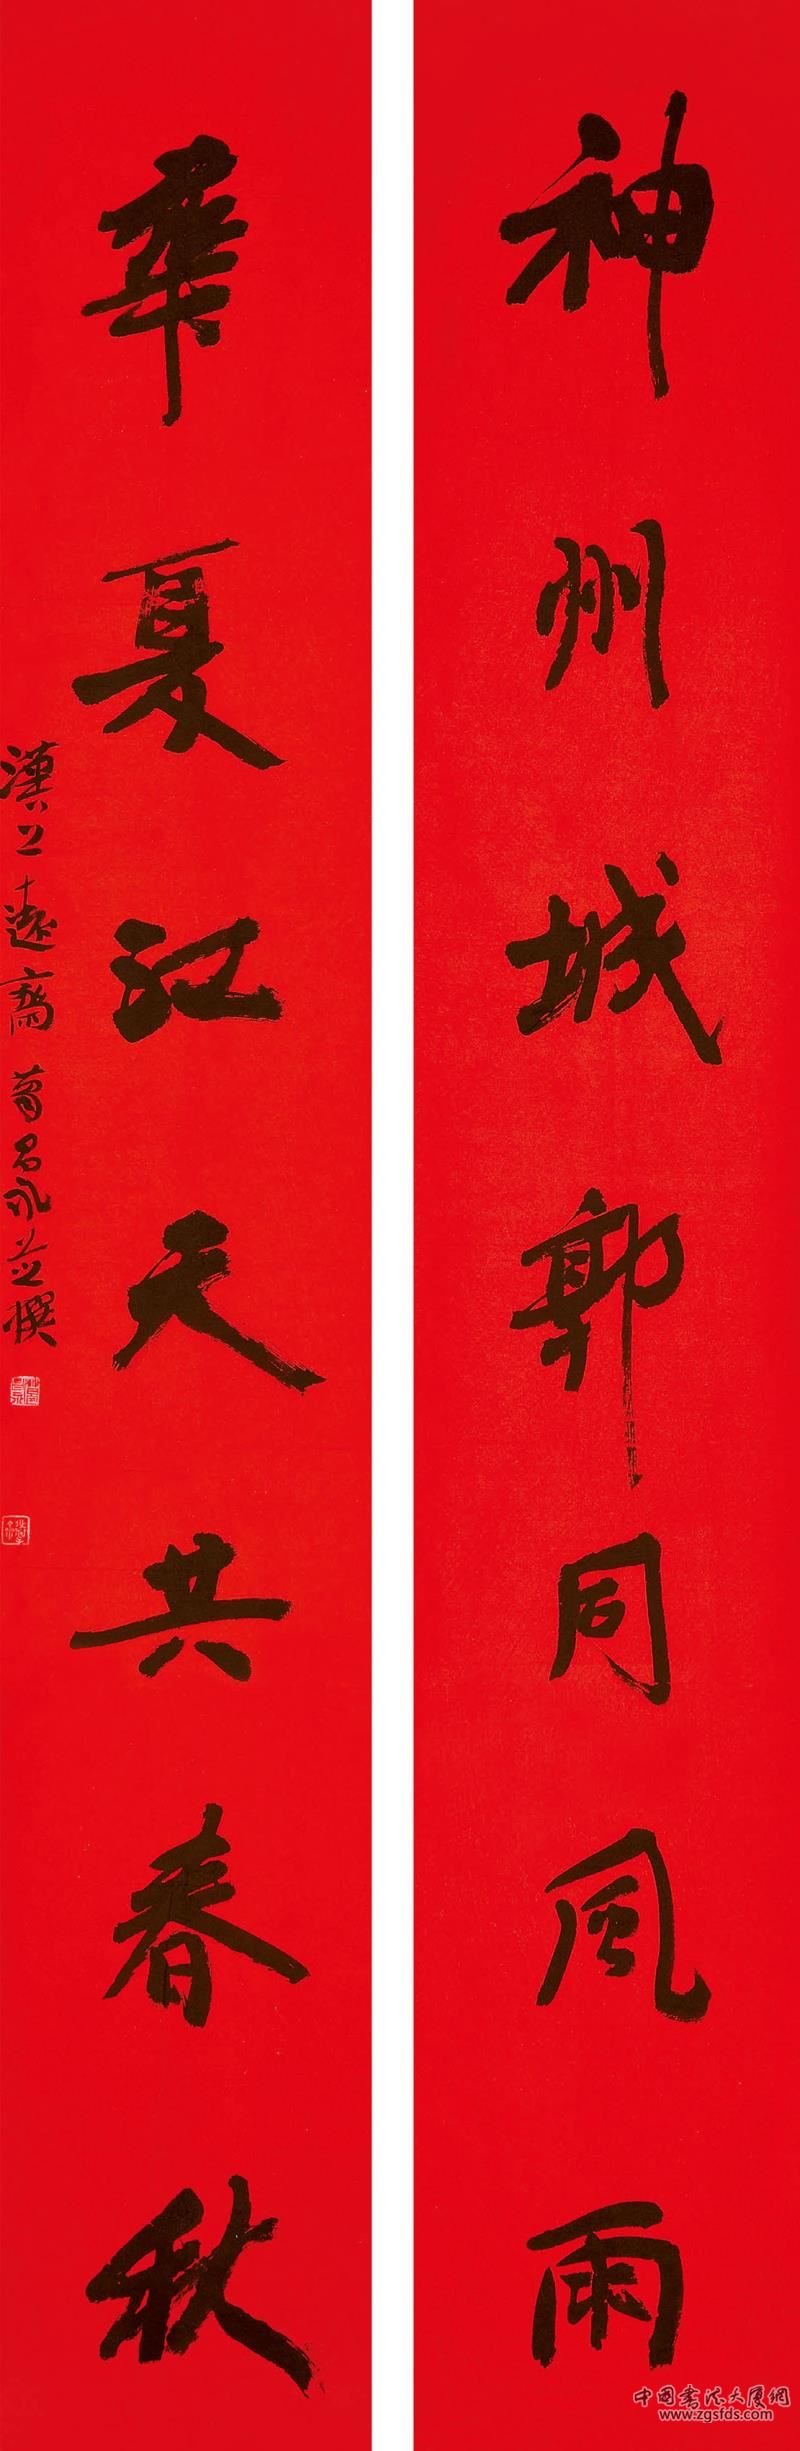 神州城郭同風雨
華夏江天共春秋
漢上遠齋葛昌永並撰
中国书法大厦网
www.zgsfds.com